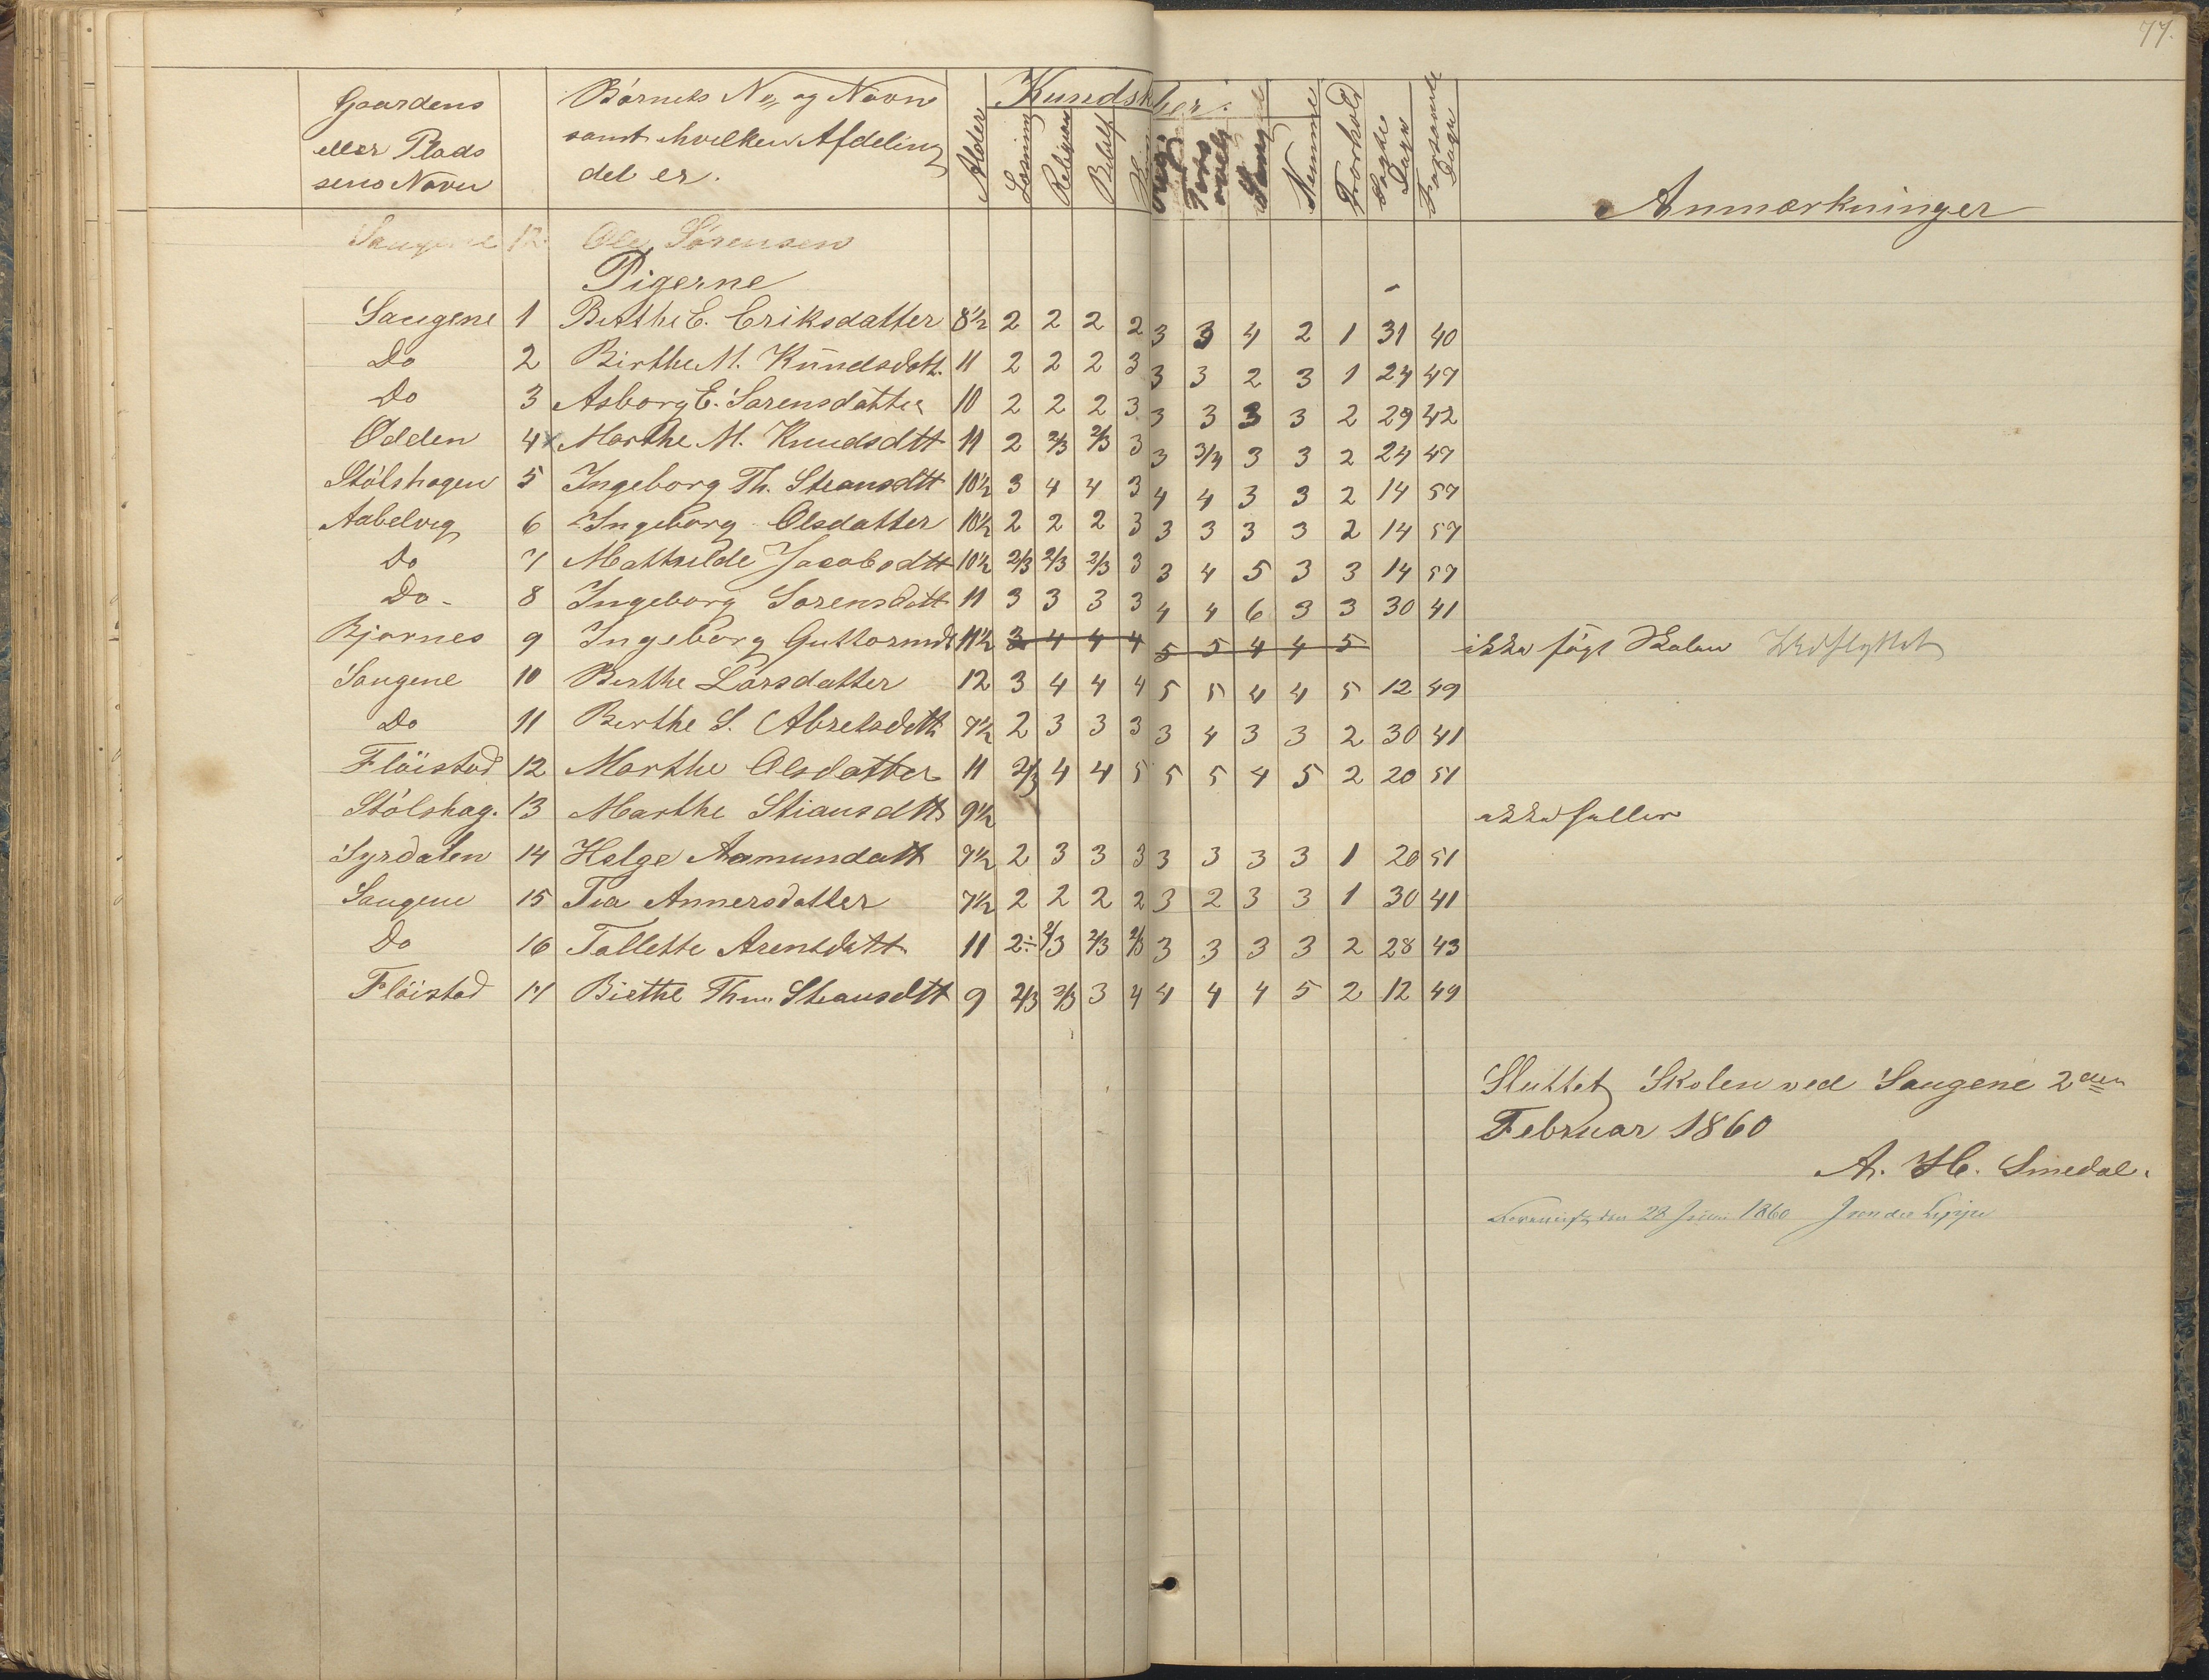 77.
Gaardens eller Pladsens Navn
Börnets No og Navn samt hvilken Afdeling det er.
Alder
Kundskber.
Læsning Religion Bibelh Sang Nemme Forhold Sögte Dage Forsømte Dage
Anmærkninger
Saugene 12 Ole Sörensen
Pigerne
Saugene 1 Birthe E. Eriksdatter 8½ 2 2 2 2 3 3 4 2 1 31 40
Do 2 Birthe M. Knudsdatt. 11 2 2 2 3 3 3 2 3 1 24 47
Do 3 Asborg E. Sorensdatter 10 2 2 2 3 3 3 3 3 2 29 42
Odden 4 x Marthe M. Knudsdtt 11 2 2/3 2/3 3 3 3/4 3 3 2 24 47
Stölshagen 5 Ingeborg Th. Steansdtt 10½ 3 4 4 3 4 4 3 3 2 14 57
Aabelveg 6 Ingeborg Olsdatter 10½ 2 2 2 3 3 3 3 3 2 14 57
Do 7 Mathilde Jacobsdtt 10½ 2/3 2/3 2/3 3 3 4 5 3 3 14 57
Do - 8 Ingeborg Sorensdatt 11 3 3 3 3 4 4 6 3 3 30 41
Bjornes 9 Ingeborg Guttormdt 11½ 3 4 4 4 5 5 4 4 5 ikke sögt Skolen Udflyttet
Saugene 10 Birthe Larsdatter 12 3 4 4 4 5 5 4 4 5 12 49
Do 11 Berthe S. Abretsdatt 7½ 2 3 3 3 3 4 3 3 2 30 41
Flöistad 12 Marthe Olsdatter 11 2/3 4 4 5 5 5 4 5 2 20 51
Stölshag. 13 Marthe Stiansdtt 9½
Syrdalen 14 Helge Aamundatt 7½ 2 3 3 3 3 3 3 3 1 20 51
Saugene 15 Tea Annersdatter 7½ 2 2 2 2 3 2 3 3 1 30 41
Do 16 Tallette Arentdatt 11 2÷ 2/3 2/3 2/3 3 3 3 3 2 28 43
Flöistad 17 Birthe Thm. Steansdtt 9 2/3 2/3 3 4 4 4 4 5 2 12 49
Sluttet Skolen ved Saugene 2den
Februar 1860
A. H. Smedal.
den 28 Juni 1860